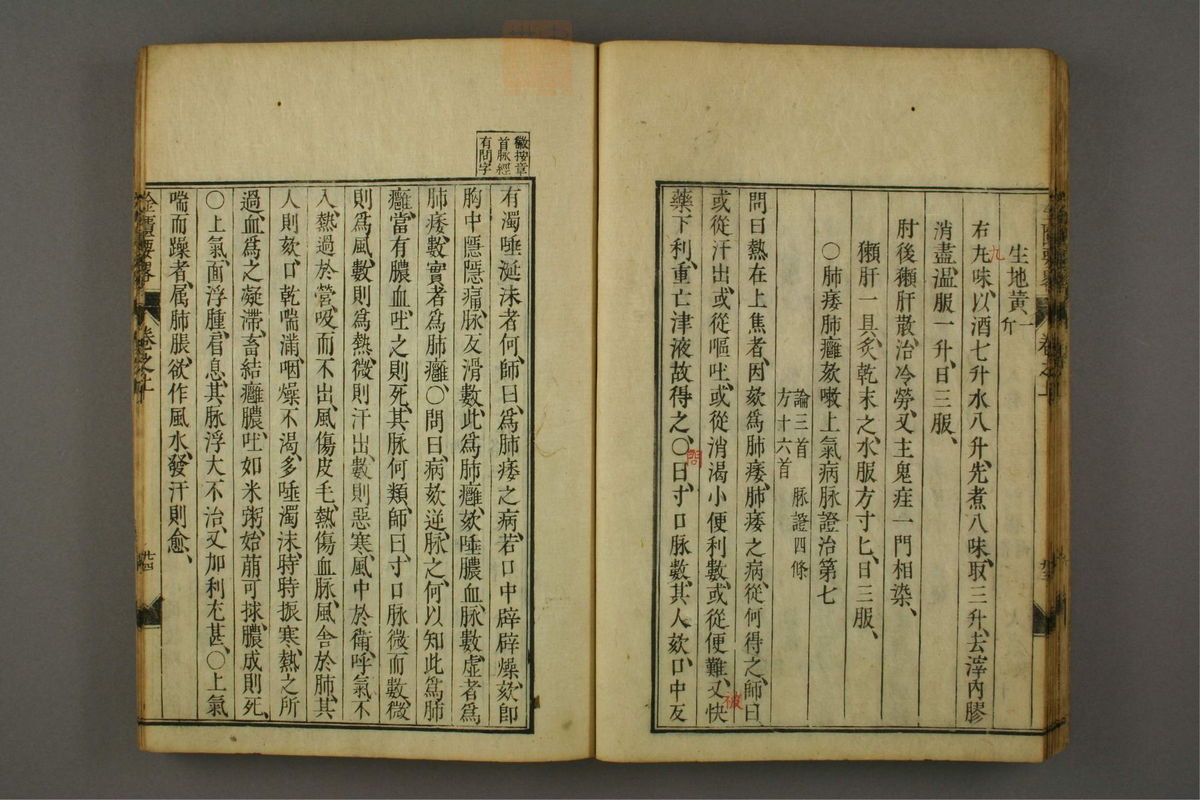 生地黃一斤
右九味、以酒七升水八升、先煮八味、取三升、去滓內膠
九
消盡、溫服一升、日三服、
肘後獺肝散、治冷勞、又主鬼疰一門相染、
獺肝一具炙乾末之、水服方寸匕、日三服、
〇肺痿肺癰欬嗽上氣病脉證治第七
論三首 脉證四條
方十六首
問曰熱在上焦者、因欬爲肺痿、肺痿之病、從何得之、師曰
或從汗出、或從嘔吐、或從消渴小便利數、或從便難、又快
被
藥下利、重亡津液、故得之、〇曰、寸口脉數、其人欬、口中反
問
有濁唾涎沫者何、師曰、爲肺痿之病、若口中辟辟燥、欬、即
胸中隱隱痛、脉反滑數、此爲肺癰、欬唾膿血、脉數、虛者爲
肺痿、數實者爲肺癰、〇問曰病欬逆、脉之、何以知此爲肺
癰、當有膿血、吐之則死、其脉何類、師曰、寸口脉微而數、微
則爲風、數則爲熱、微則汗出、數則惡寒、風中於衛、呼氣不
入、熱過於營、吸而不出、風傷皮毛、熱傷血脉、風舍於肺、其
人則欬、口乾喘滿、咽燥不渴、多唾濁沫、時時振寒、熱之所
過、血爲之凝滯、畜結癰膿、吐如米粥、始萠可捄、膿成則死、
〇上氣、面浮腫、肩息、其脉浮大不治、又加利尤甚、〇上氣
喘而躁者、属肺脹、欲作風水、發汗則愈、
徽按章
首脉經
有問字
金匱要畧
卷之上
廿四